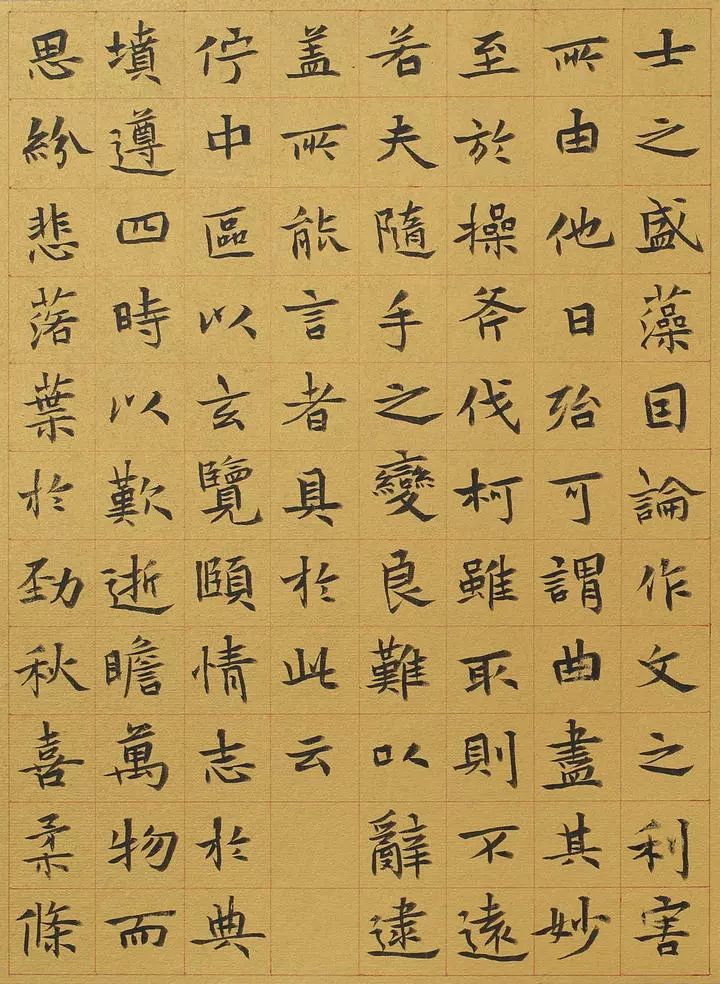 士之盛藻因論作文之利害
所由他日殆可謂曲盡其妙
至於操斧伐柯雖取則不遠
若夫隨手之變良難以辭逮
盖所能言者具於此云
佇中區以玄覽頤情志於典
墳遵四時以歎逝瞻萬物而
思紛悲落葉於勁秋喜柔條